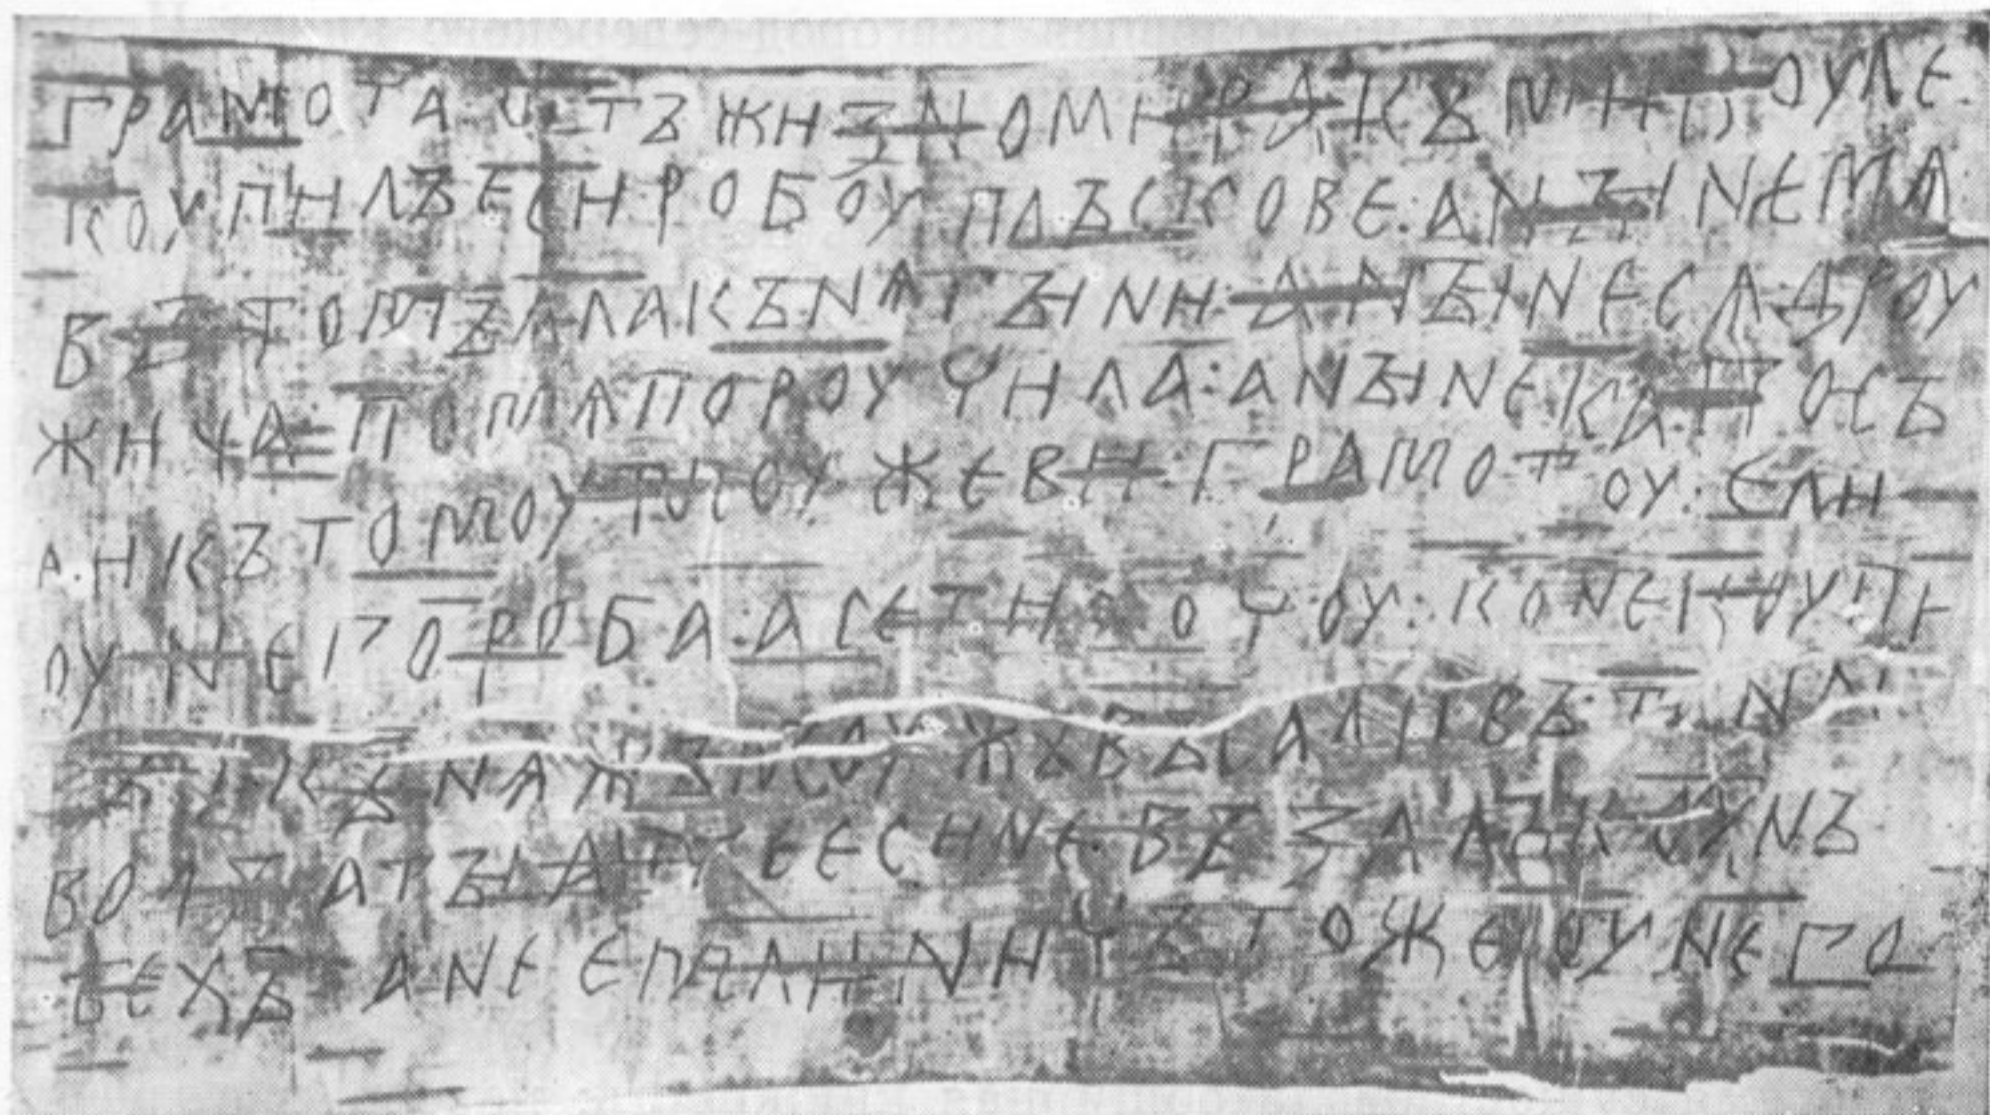 ГРАМОТА ѠТЪ ЖИЗНОМИРА КЪ МИКОУЛЕ
КОУПИЛЪ ЕСИ РОБОУ ПЛЪСКОВЕ · А НЪІНЕ МѦ
ВЪ ТОМЪ ѦЛА КЪНѦГЪІНИ · А НЪІНЕ СѦ ДРОУ
ЖИНА ПО МѦ ПОРОУЧИЛА · А НЪІНЕ КА ПОСЪ
ЛИ КЪ ТОМОУ МОУЖЕВИ ГРАМОТОУ · ЕЛИ
ОУ НЕГО РОБА · А СЕ ТИ ХОЧОУ · КОНЕ КОУПИ
ВЪ · И КЪНѦЖЪ МОУЖЪ ВЪСАДИВЪ ТА НА
СЪВОДЪ · А ТЪІ АТЧЕ ЕСИ НЕ ВЪЗАЛЪ КОУНЪ
ТЕХЪ · А НЕ ЕМЛИ НИЧЪТО ЖЕ ОУ НЕГО